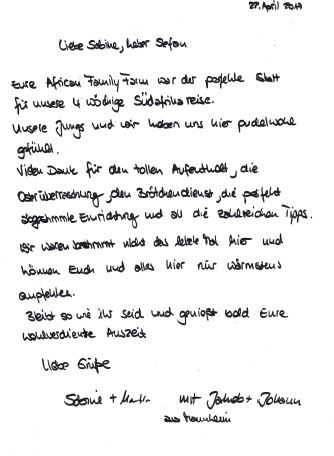 22. April 2017
Liebe Sabine, lieber Stefan
Eure African Family Farm war der perfekte Start
für unsere 4 wöchige Südafrikareise.
Unsere Jungs und wir haben uns hier pudelwohl
gefühlt.
Vielen Dank für den tollen Aufenthalt, die
Osterüberraschung, den Brötchendienst, die perfekt
abgestimmte Einrichtung und all die zahlreichen Tipps.
Wir waren bestimmt nicht das letzte Mal hier und
können Euch und alles hier nur wärmstens
empfehlen.
Bleibt so wie ihr seid und genießt bald Eure
wohlverdiente Auszeit
Liebe Grüße
Sabine + mit Jakob + Johann
aus Mannheim